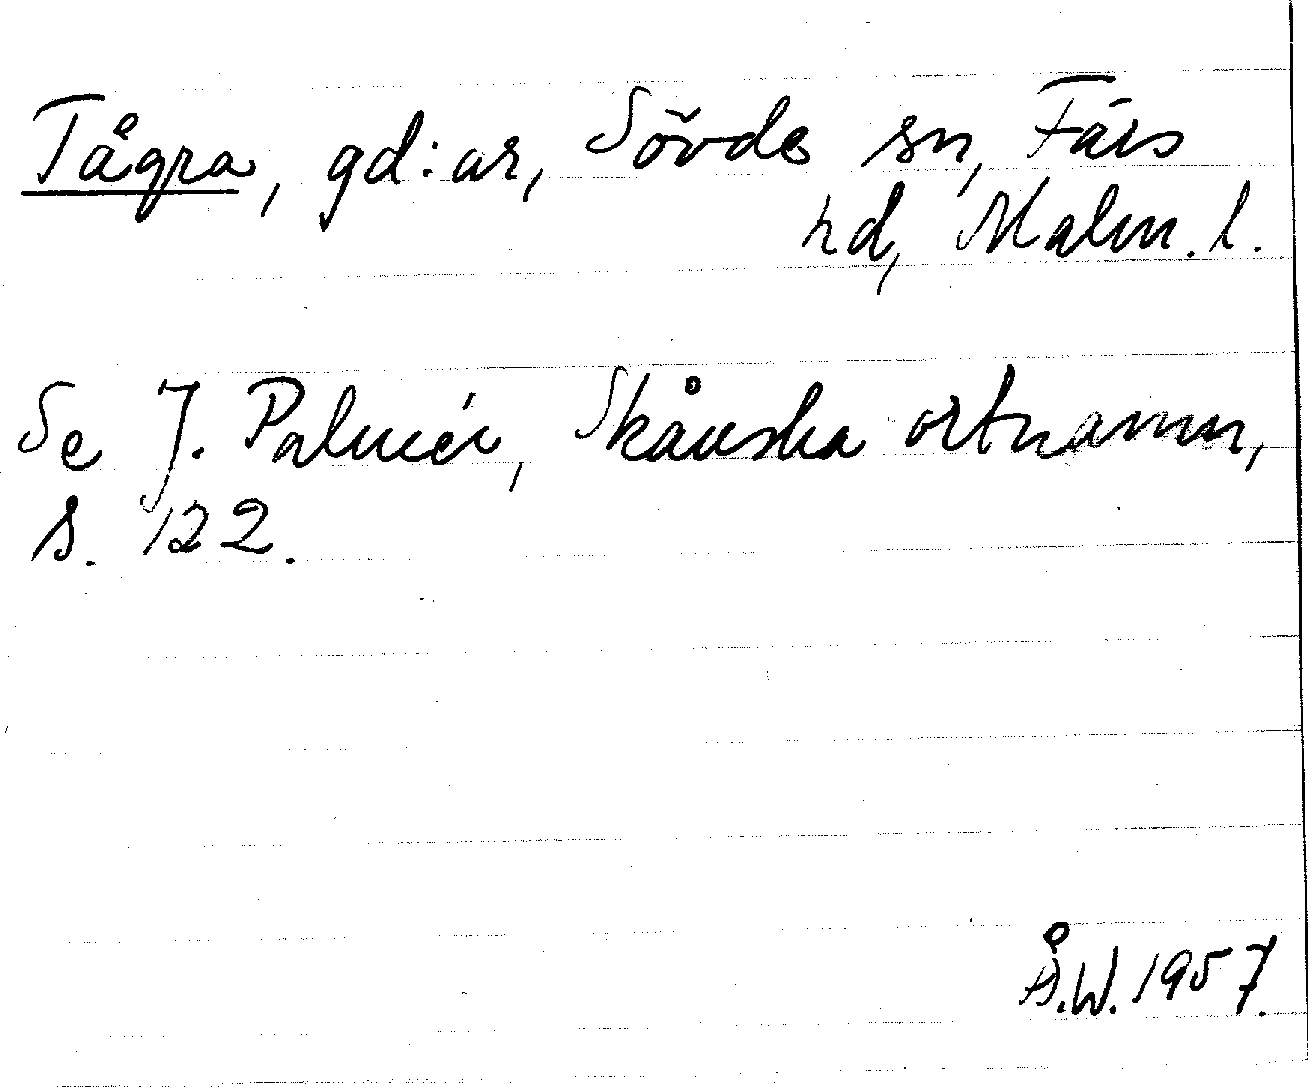 Tågra, gd:ar, Sövde sn, Färs
hd, Malm. l.
Se J. Palmér, Skånska ortnamn,
s. 122.
Å.W. 1957.